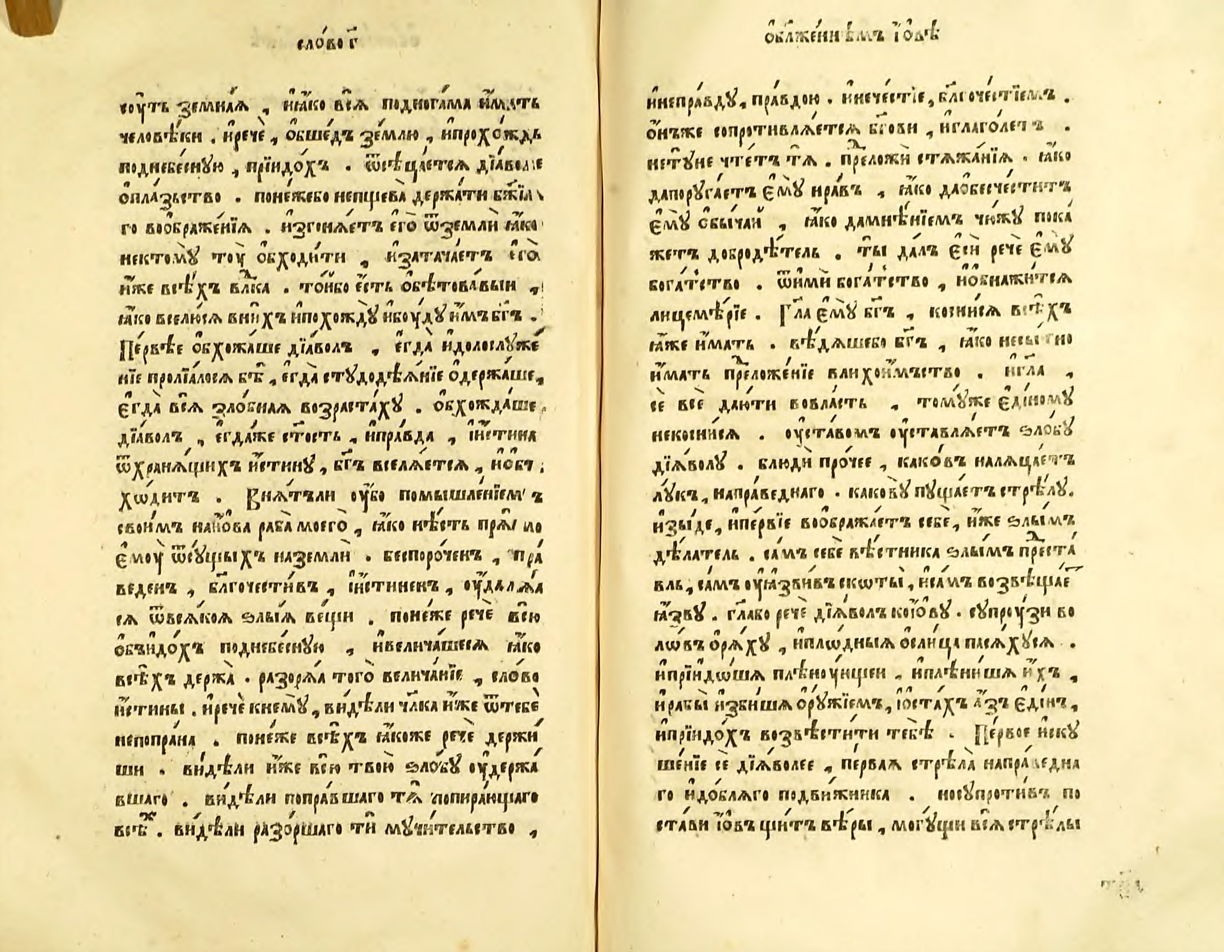 сло́во г҃
соу́ть земна́ѧ , ꙗ҆́ко всѧ̀ поднога́ма и҆́мать
человѣ́ки . и҆речѐ , ѻ҆бше́дъ зе́млю , и҆прохо́ждь
поднебе́сную , прїидо́хъ . ѿвѣща́етсѧ дїа́воле
ѻ҆пла́зьство . поне́жебо непщева̀ держа́ти бж҃їѧ
го воѻбраже́нїѧ . и҆згонѧ́етъ є҆го̀ ѿземлѝ ꙗ҆́ко
нектому̀ тоу̀ ѻ҆бходи́ти , и҆затача́етъ є҆го̀
и҆́же всѣ́хъ влⷣка . то́ибо є҆́сть ѻ҆бѣтова́выи ,
ꙗ҆́ко вселю́сѧ вни́хъ и҆похожду̀ и҆боу́ду и҆́мъ бг҃ъ .
Пе́рвѣе ѻ҆бхожа́ше дїа́волъ , є҆гда̀ и҆долослуже́
нїе пролїа́лосѧ бѣ̀ , є҆гда̀ студодѣѧ́нїе ѻ҆держа́ше ,
є҆гда̀ всѧ̀ ѕло́бнаѧ возраста́ху . ѻ҆бхожда́ше
дїа́волъ , є҆гда́же ст҃ость , и҆пра́вда , и҆и҆́стина
ѿхранѧ́щихъ и҆́стину , бг҃ъ вселѧ́етсѧ , и҆ѻбъ
хо́дитъ . Внѧ́тъли оу҆̀бо помышле́нїемъ
свои́мъ наи҆́ѻва раба̀ моего̀ , ꙗ҆́ко нѣ́сть прѧ́мо
є҆моу̀ ѿсу́щыхъ наземлѝ . беспоро́ченъ , пра́
веденъ , бл҃гочести́въ , и҆и҆́стиненъ , оу҆далѧ́ѧ
сѧ ѿвсѧ́коѧ ѕлы́ѧ ве́щи . поне́же речѐ всю̀
ѻ҆бъидо́хъ поднебе́сную , и҆велича́шесѧ ꙗ҆́ко
всѣ́хъ держа̀ . разорѧ́ѧ того̀ велича́нїе , сло́во
и҆́стины . и҆речѐ кнему̀ , ви́дѣли чл҃ка и҆́же ѿтебѐ
непопра́на . поне́же всѣ́хъ ꙗ҆́коже речѐ держи́
ши . ви́дѣли и҆́же всю̀ твою̀ ѕло́бу оу҆держа́
вшаго . ви́дѣли попра́вшаго тѧ̀ попира́ющаго
всѣⷯ . ви́дѣли разо́ршаго тѝ мучи́тельство ,
ѻ҆бл҃же́ннѣмъ і҆́ѻвѣ
и҆непра́вду , пра́вдою . и҆нече́стїе , бл҃гоче́стїемъ .
ѻ҆́нъже сопротивлѧ́етсѧ бг҃ови , и҆глаго́летъ .
нету́не чте́тъ тѧ̀ . преложѝ стѧжа́нїѧ . ꙗ҆́ко
дапоруга́етъ є҆му̀ нра́въ , ꙗ҆́ко даѻбесчести́тъ
є҆му̀ ѻ҆бы́чаи , ꙗ҆́ко дамнѣ́нїемъ чю́жу пока́
жетъ добродѣ́тель . ты̀ да́лъ є҆сѝ речѐ є҆му̀
бога́тство . ѿимѝ бога́тство , и҆ѻбнажи́тсѧ
лицемѣ́рїе . Гл҃а є҆му̀ бг҃ъ , косни́сѧ всѣ́хъ
ꙗ҆́же и҆́мать . вѣ́дѧшебо бг҃ъ , ꙗ҆́ко несы́тно
и҆́мать преложе́нїе влихои҆́мъство . и҆гл҃а ,
сѐ всѐ даю́ти вовла́сть , тому́же є҆ди́ному
некосни́сѧ . оу҆ста́вомъ оу҆ставлѧ́етъ ѕло́бу
дїа́волу . блюди̇̀ про́чее , како́въ налѧца́етъ
лу́къ , направе́днаго . какову̀ пуща́етъ стрѣлу̀ .
и҆зы́де , и҆пе́рвїе воѻбража́етъ себѐ , и҆́же ѕлы́мъ
дѣ́латель . са́мъ себѐ вѣ́стника ѕлы́мъ преста́
вль , са́мъ оу҆ꙗ҆́звивъ скоты̀ , и҆са́мъ возвѣща́еⷮ
ꙗ҆́зву . гл҃ако речѐ дїа́волъ коі҆́ѻву . супру́зи во
ло́въ ѻ҆рѧ́ху , и҆пло́дныѧ ѻ҆сли́ца пасѧ́хусѧ .
и҆прїидо́шѧ плѣноу́ющеи , и҆плѣни́шѧ и҆́хъ ,
и҆рабы̀ и҆зби́шѧ ѻ҆ру́жїемъ , і҆ѻста́хъ а҆́зъ є҆ди́нъ ,
и҆прїидо́хъ возвѣсти́ти тебѣ̀ . Пе́рвое и҆ску
ше́нїе сѐ дїа́волее , пе́рваѧ стрѣла̀ напра́ведна
го и҆до́блѧго подви́жника . носупроти́въ по
ста́ви і҆́ѻвъ щи́тъ вѣ́ры , могу́щи всѧ̀ стрѣ́лы